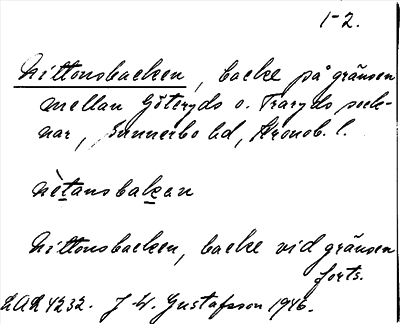 1-2.
Nittonsbacken, backe på gränsen
mellan Göteryds o. Traryds sock-
nar, Sunnerbo hd, Kronob. l.
nètansbakan
Nittonsbacken, backe vid gränsen
forts.
LAL 4232. J. W. Gustafsson 1946.